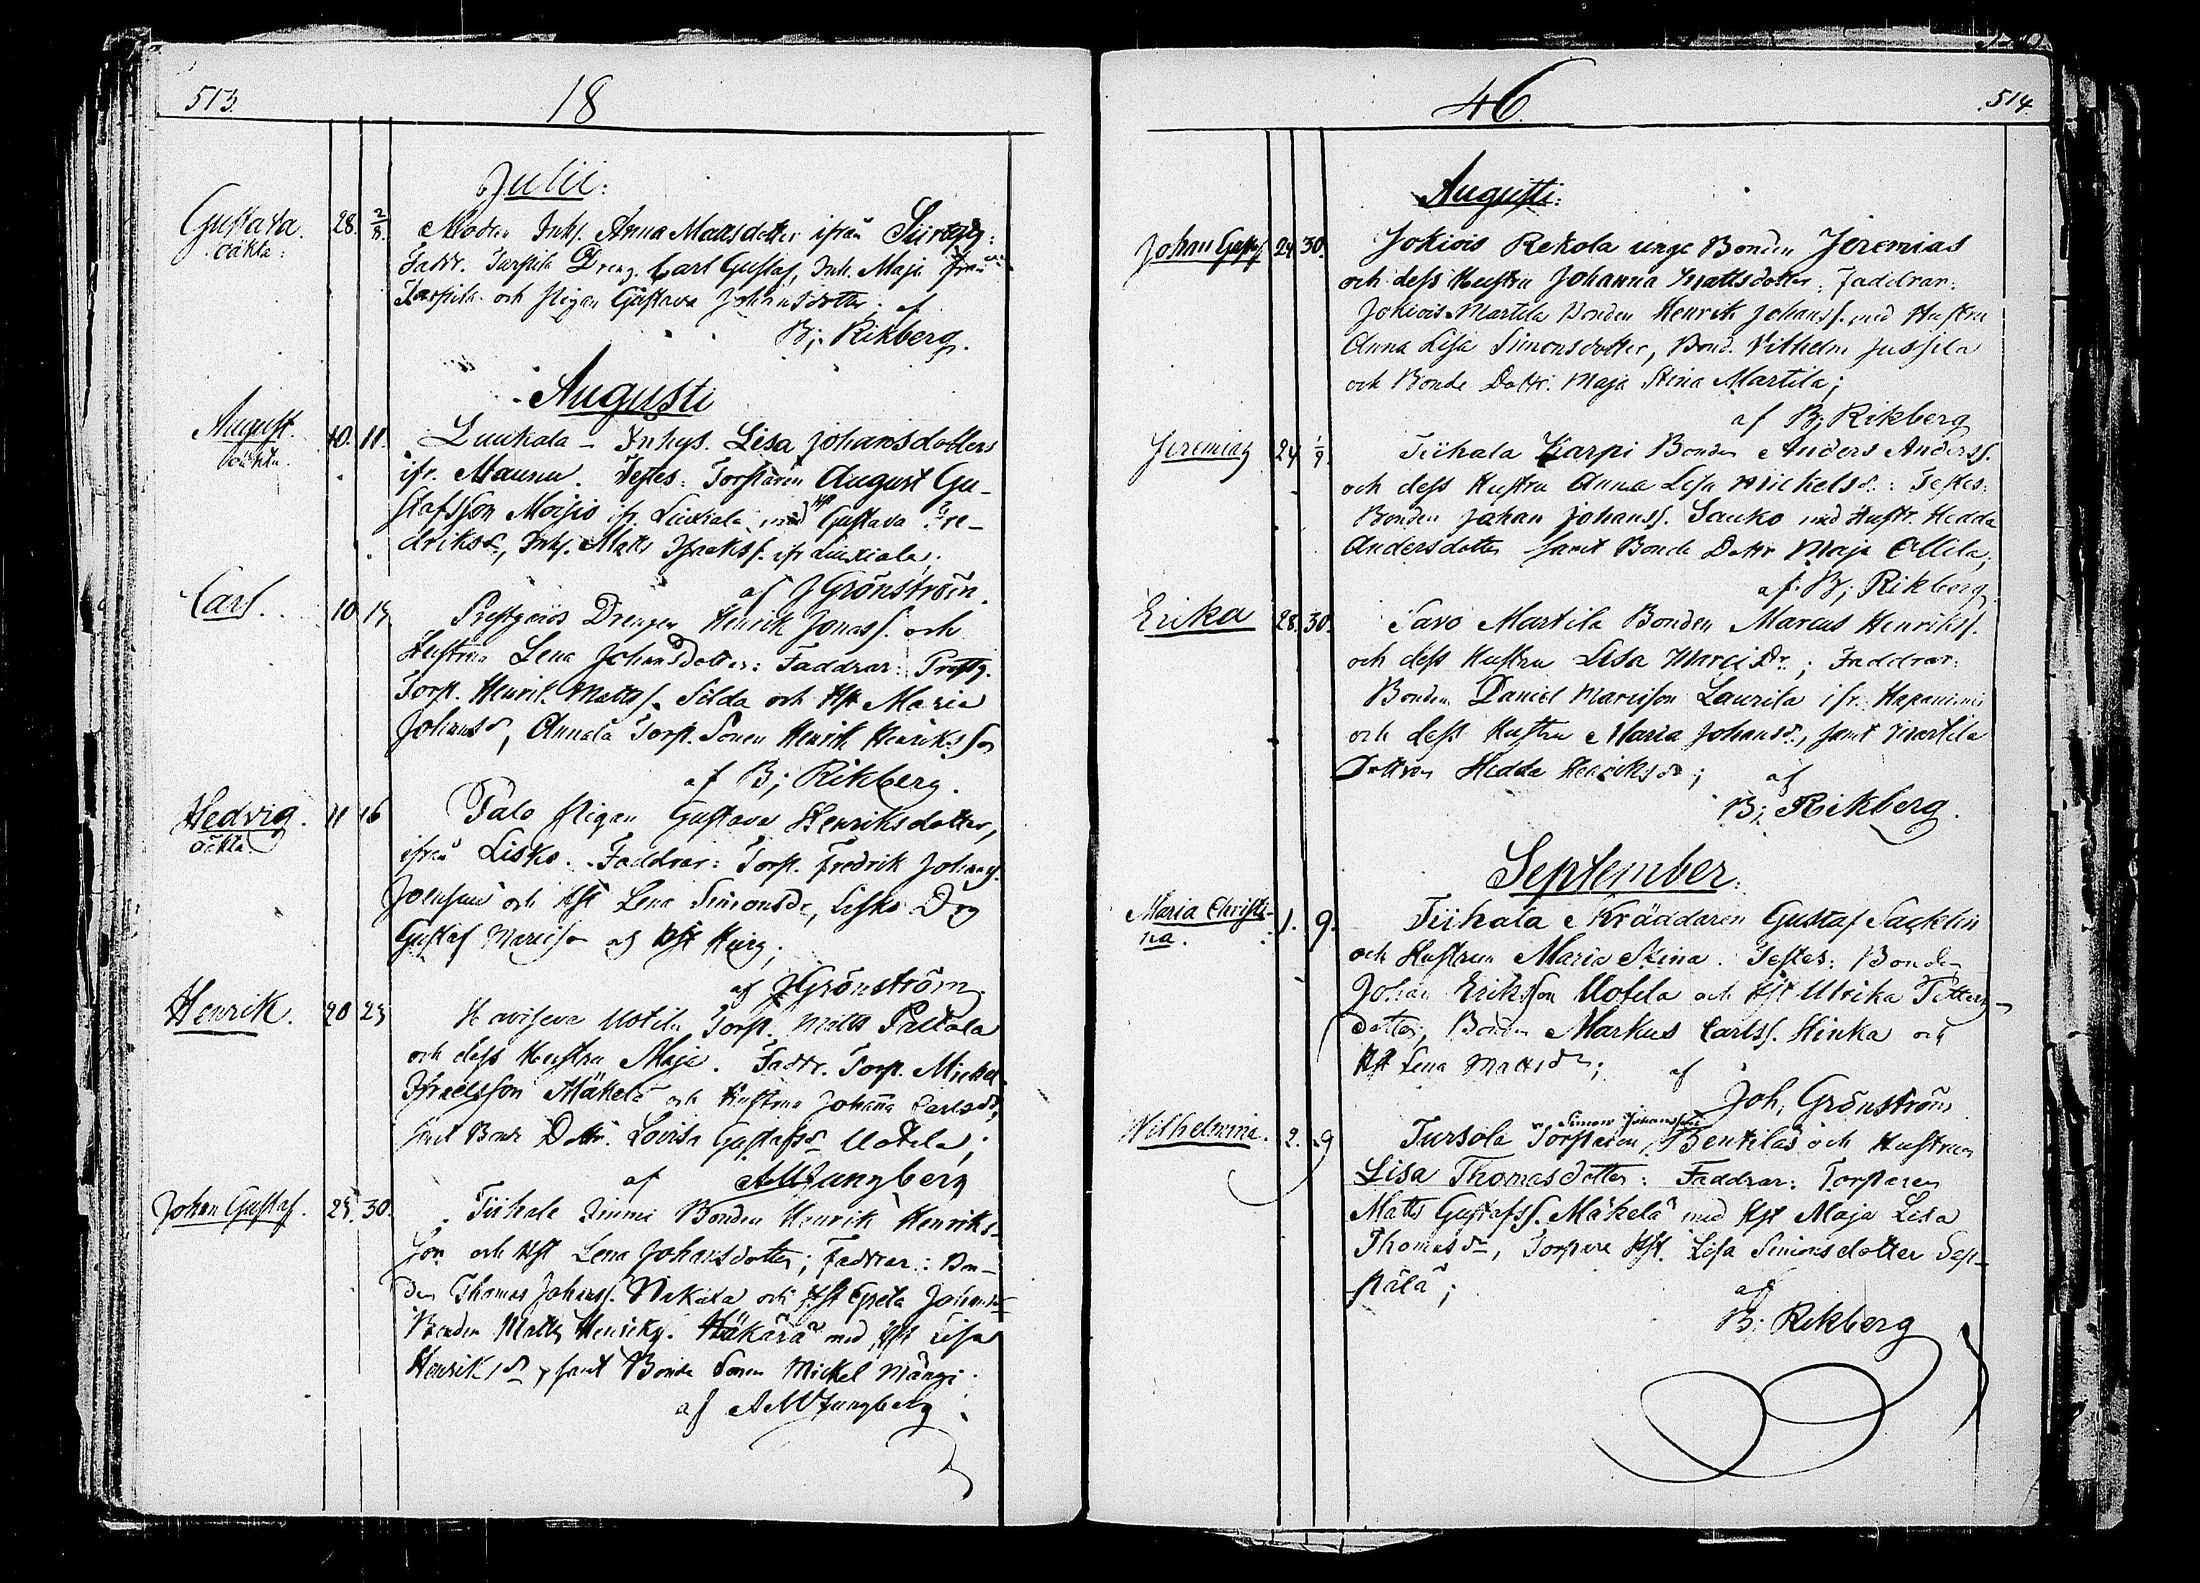 513.
18
Julii:
Gustava. 28. 2/8. Modren Inhs. Anna Mattsdotter ifrån
oäkta: Faddr. Turpila Dreng. Carl Gustaf, Inh. Maja
Turpila och Pigan Gustava Johansdotter; af
B; Rikberg.
Augusti
August. 10. 11. Luukala - Inhys. Lisa Johansdotters
oäkta. ifr. Maunu. Testes: Torparen August Gu-
stafsson Moisio ifr. Liuxiala, med Hst Gustava Fre-
driksdr, Inhs. Matts Isaakss. ifr Liuxiala;
af J Grönström.
Carl. 10 15 Prestgårds Drengen Henrik Jonass. och
Hustrun Lena Johansdotter: Faddrar: Prestg.
Torp. Henrik Mattss. Silda och Hst Maria
Johansdr, Annala Torp. Sonen Henrik Henriksson
af B; Rikberg.
Hedvig. 11 16 Palo Pigan Gustava Henriksdotter,
oäkta ifrån Lisko. Faddrar: Torp. Fredrik Johanss.
och Hst Lena Simonsdr, Lisko Drg
Gustaf Marcisson af
af J Grönström.
Henrik. 20 23 Uotila Torp. Matts Paltola
och dess Hustru Maja. Faddr. Torp. Mickel
Israelsson Mäkelä och Hustrun Johanna Carlsdr,
samt Bond Dottr. Lovisa Gustafsdr Uotila;
af AWLjungberg
Johan Gustaf. 25. 30. Tiihala Bonden Henrik Henriks-
son och Hst Lena Johansdotter; Faddrar: Bon-
den Thomas Johanss. Nakula och Hst Greta Johansdr
Bonden Matts Henrikss. Häkärä med Hst Lisa
Henriksdr, samt Bonde Sonen Mickel
af AWLjungberg
46.
514.
Augusti:
Johan Gustaf 24 30. Jokiois Rekola unge Bonden Jeremias
och dess Hustru Johanna Mattsdotter, Faddrar:
Jokiois Martila Bonden Henrik Johanss. med Hustru
Anna Lisa Simonsdotter, Bond. Vilhelm Jussila
och Bonde Dottr. Maja Stina Martila;
af B; Rikberg
Jeremias 24 1/9. Tiihala Karpi Bonden Anders Anderss.
och dess Hustru Anna Lisa Michelsdr: Testes:
Bonden Johan Johanss. Sauko med Hustr. Hedda
Andersdotter samt Bonde Dottr Maja Ollila,
af B; Rikberg
Erika 28. 30. Savo Martila Bonden Marcus Henrikss.
och dess Hustru Lisa MarciDr.; Faddrar:
Bonden Daniel Marcisson Laurila ifr. Hapaniemi
och dess Hustru Maria Johansdr, samt Martila
Dottren Hedda Henriksdr; af
B; Rikberg.
September.
Maria Christi- 1. 9. Tiihala Skräddaren Gustaf Sacklin
na. och Hustrun Maria Stina. Testes: Bonden
Johan Eriksson Uotila och Hst Ulrika Petters-
dotter, Bonden Markus Carlss. Hinka och
Hst Lena Mattsdr; af
Joh, Grönström
Wilhelmina. 2. 9 Tursola Torparen Simon Johansson Bentilä och Hustrun
Lisa Thomasdotter: Faddrar: Torparen
Matts Gustafss. Mäkelä med Hst Maja Lisa
Thomasdr, Torpare Hst. Lisa Simonsdotter Sep-
pälä; af
B; Rikberg